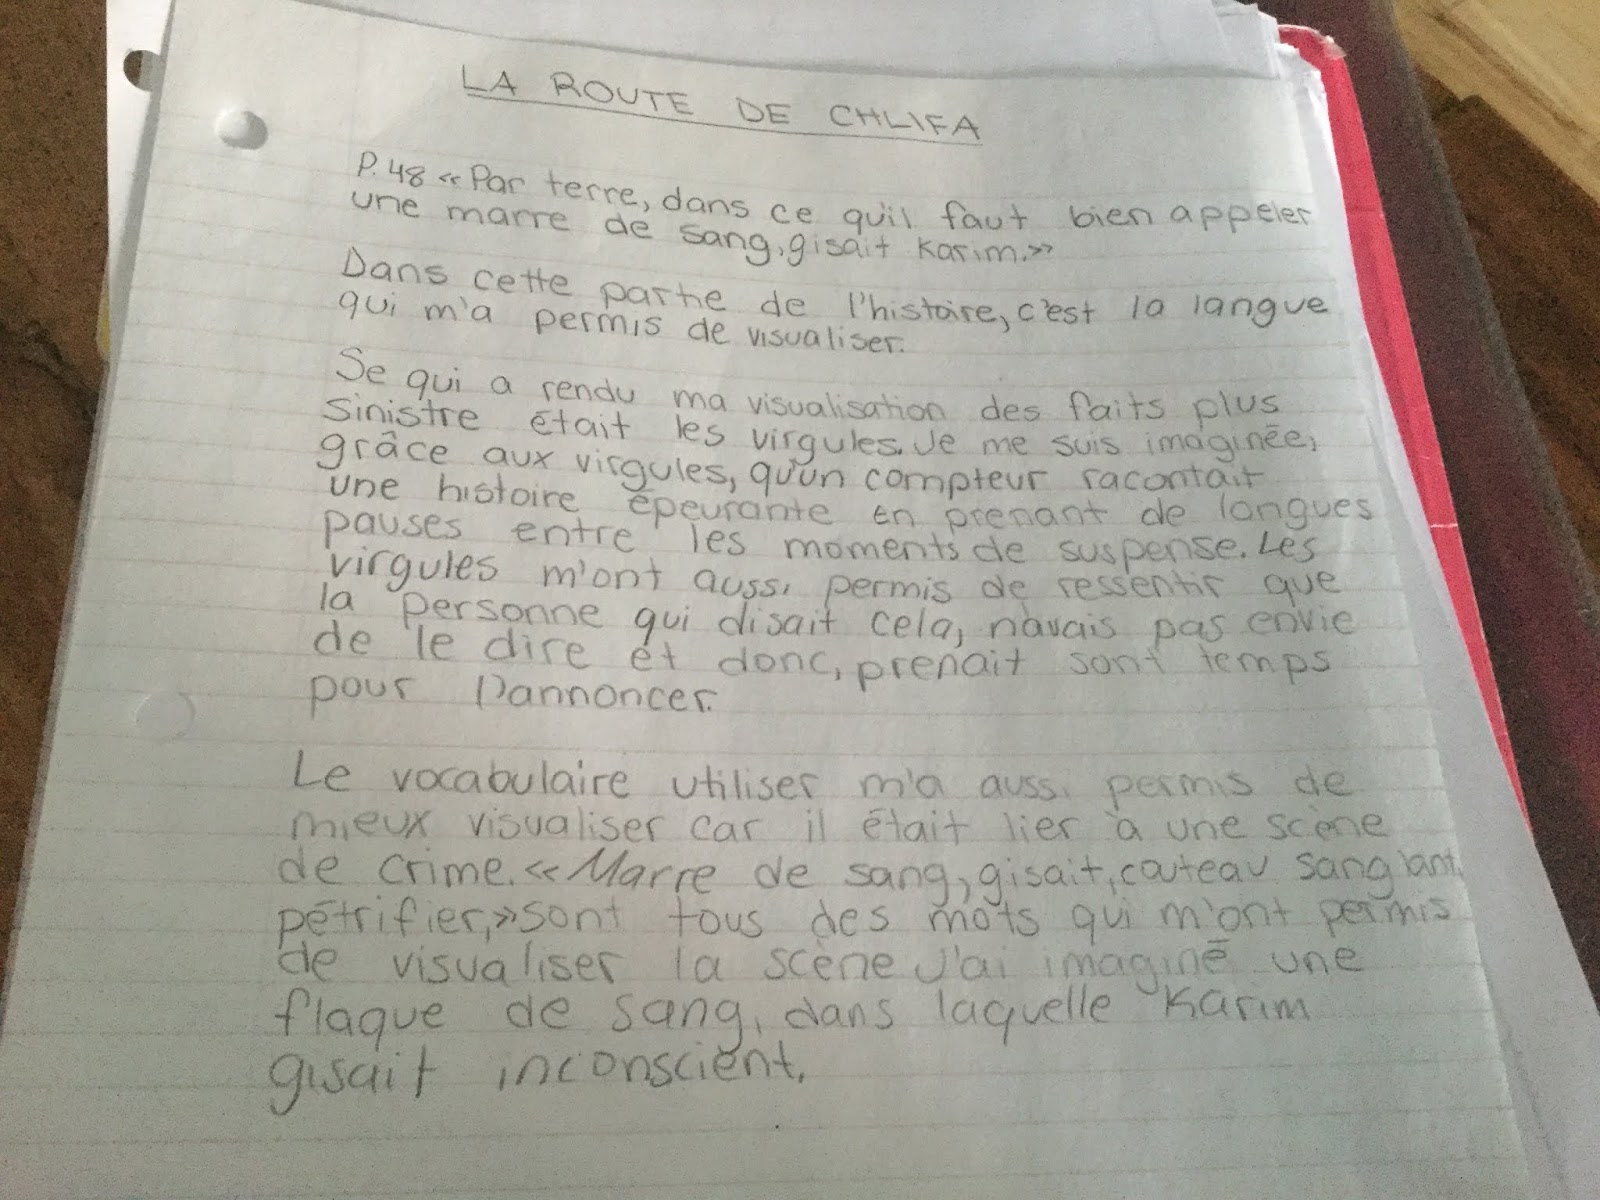 LA ROUTE DE CHLIFA
P.48 «Par terre, dans ce qu'il faut bien appeler
une marre de sang, gisait Karim.»
Dans cette partie de l'histoire, c'est la langue
qui m'a permis de visualiser.
Se qui a rendu ma visualisation des faits plus
sinistre était les virgules. Je me suis imaginée,
grâce aux virgules, qu'un compteur racontait
une histoire épeurante en prenant de longues
pauses entre les moments de suspense. Les
virgules m'ont aussi permis de ressentir que
la personne qui disait cela, n'avais pas envie
de le dire et donc, prenait sont temps
pour l'annoncer.
Le vocabulaire utiliser m'a aussi permis de
mieux visualiser car il était lier à une scène
de crime. «Marre de sang, gisait, couteau sanglant,
pétrifier,» sont tous des mots qui m'ont permis
de visualiser la scène J'ai imaginé une
flaque de sang, dans laquelle Karim
gisait inconscient.